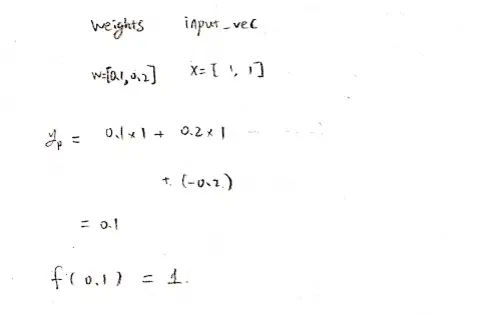 weights input_vec
w=[0.1,0.2] x=[1,1]
yₚ = 0.1×1 + 0.2×1
+ (-0.2)
= 0.1
f(0.1) = 1.